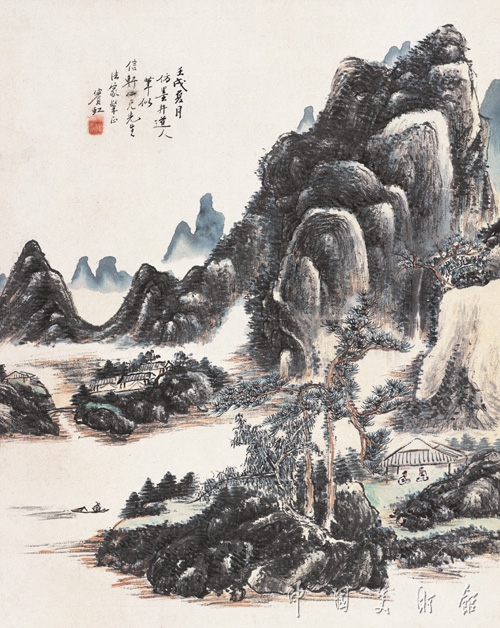 壬戌夏月
仿墨井道人
筆似
信軒仁兄先生
法家鑒正
賓虹
中国美术馆